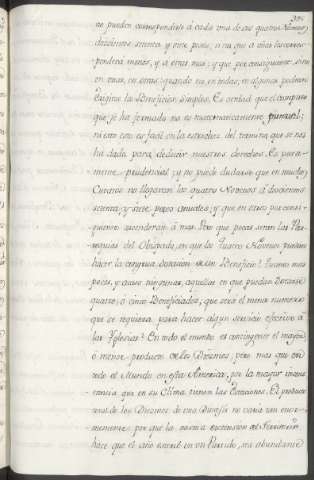 no pueden corresponderle à cada uno de sus quatros Novenos
doscientos setenta y siete pesos, si no que à unos les corres-
pondera menos, y à otros mas; y que por consiguiente, si no
en unas, en otras; quando no, en todas, en algunas podrian
Erigirse los Beneficios simples. Es verdad que el computo
que se ha formado no es matematicamente puntual;
ni esto era facil en la estrechez del termino que se nos
ha dado para deducir nuestros derechos. Es pura-
mente prudencial; y no puede dudarse que en muchos
Curatos no llegaran los quatro Novenos à doscientos
setenta, y siete pesos anuales; y que en otros por consi-
guiente ascenderan à mas. Pero que pocas seran las Par-
roquias del Obispado, en que los quatro Novenos puedan
hacer la congrua dotacion de un Beneficio? Quanto mas
pocas, y acaso ningunas, aquellas en que puedan Dotarse
quatro, ò cinco Beneficiados, que será el menor numero
que se requiera para hacer algun servicio efectivo à
las Iglesias? En todo el mundo es contingente el mayor,
ò menor producto de los Diezmos; pero mas que en
todo el Mundo en esta America, por la mayor incons-
tancia que en su Clima tienen las Estaciones. El produc-
to total de los Diezmos de una Diocesis no varia tan enor-
memente, por que la misma extension del Territorio
hace que el año esteril en un Partido, sea abundante